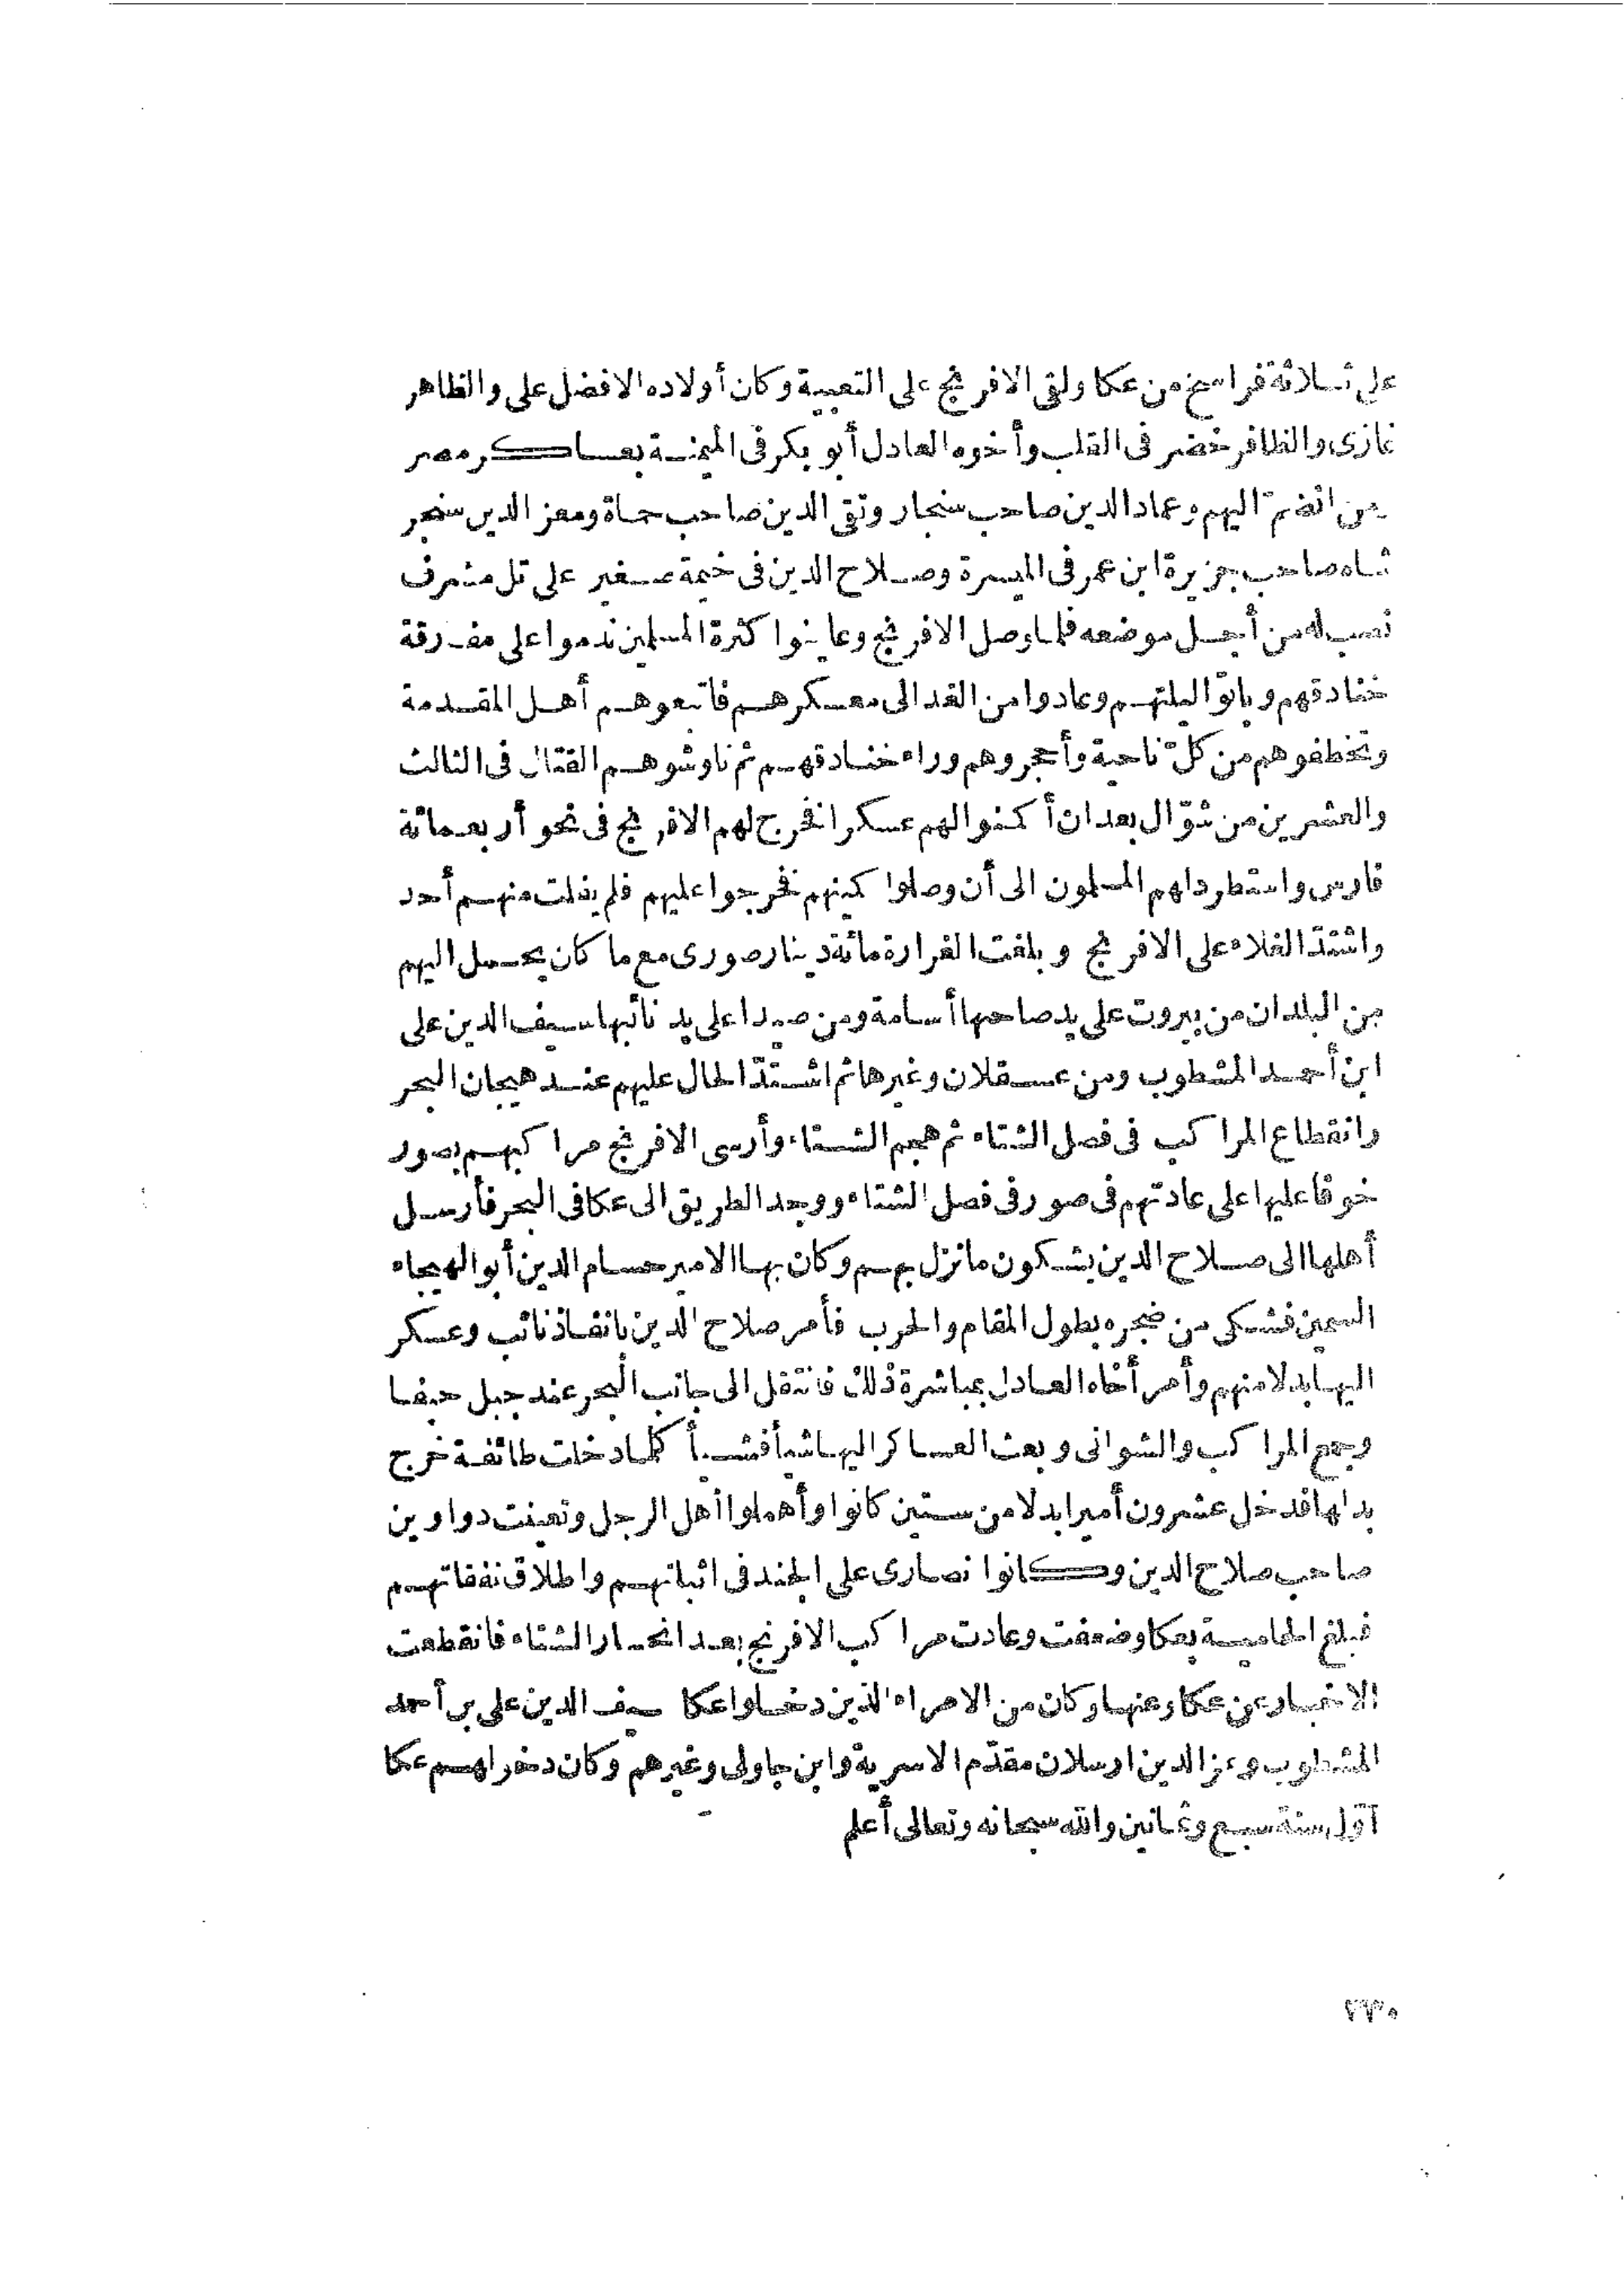 على ثلاثة فراسخ من عكا ولقى الافرنج على التعبية وكان أولاده الافضل على والظاهر
غازى والظافر خضر فى القلب وأخوه العادل أبو بكر فى الميمنة بعساكر مصر
ومن انضمّ اليهم وعماد الدين صاحب سنجار وتقى الدين صاحب حماة ومعز الدين سنجر
شاه صاحب جزيرة ابن عمر فى الميسرة وصلاح الدين فى خيمة صغير على تل مشرف
نصب له من أجل موضعه فلما وصل الافرنج وعاينوا كثرة المسلمين ندموا على مفارقة
خنادقهم وباتوا ليلتهم وعادوا من الغد الى معسكرهم فاتبعوهم أهل المقدمة
وتخطفوهم من كلّ ناحية وأحجروهم وراء خنادقهم ثم ناوشوهم القتال فى الثالث
والعشرين من شوّال بعد ان أكمنوا لهم عسكرا فخرج لهم الافرنج فى نحو أربعمائة
فارس واستطرد لهم المسلمون الى أن وصلوا كمينهم فخرجوا عليهم فلم يفلت منهم أحد
واشتدّ الغلاء على الافرنج وبلغت الغرارة مائة دينار صورى مع ما كان يحمل اليهم
من البلدان من بيروت على يد صاحبها أسامة ومن صيدا على يد نائبها سيف الدين على
ابن أحمد المشطوب ومن عسقلان وغيرها ثم اشتدّ الحال عليهم عند هيجان البحر
وانقطاع المراكب فى فصل الشتاء ثم هجم الشتاء وأرسى الافرنج مراكبهم بصور
خوفا عليها على عادتهم فى صور فى فصل الشتاء ووجد الطريق الى عكا فى البحر فأرسل
أهلها الى صلاح الدين يشكون ما نزل بهم وكان بها الامير حسام الدين أبو الهيجاء
السمين فشكى من ضجره بطول المقام والحرب فأمر صلاح الدين بانفاذ نائب وعسكر
اليها بدلا منهم وأمر أخاه العادل بمباشرة ذلك فانتقل الى جانب البحر عند جبل حيفا
وجمع المراكب والشوانى وبعث العساكر اليها شيأ فشيأ كلما دخلت طائفة خرج
بدلها فدخل عشرون أميرا بدلا من ستين كانوا وأهملوا أهل الرجل وتعينت دواوين
صاحب صلاح الدين وكانوا نصارى على الجند فى اثباتهم واطلاق نفقاتهم
فبلغ الحامية بعكا وضعفت وعادت مراكب الافرنج بعد انحسار الشتاء فانقطعت
الاخبار عن عكا وعنها وكان من الامراء الذين دخلوا عكا سيف الدين على بن أحمد
المشطوب وعز الدين ارسلان مقدّم الاسرية وابن جاولى وغيرهم وكان دخولهم عكا
أوّل سنة سبع وثمانين والله سبحانه وتعالى أعلم